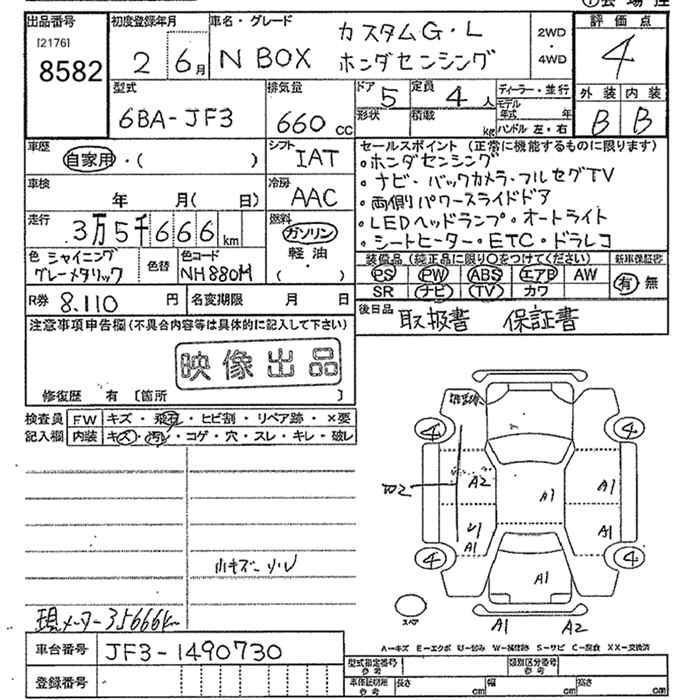 ①会場控
出品番号 初度登録年月 車名・グレード 評価点
[2176]
8582
2 6月 N BOX カスタムG・L
ホンダセンシング
2WD
・
4WD
4
型式 排気量 ドア 5 定員 4人 ディーラー・並行 外装 内装
6BA-JF3 660cc 形状 積載 kg モデル年式 年 B B
ハンドル 左・右
車歴 シフト セールスポイント (正常に機能するものに限ります)
自家用・( ) IAT 。ホンダセンシング
車検 冷房 ・ナビ・バックカメラ・フルセグTV
年 月( 日) AAC 。両側パワースライドドア
走行 3万5千666km 燃料 。LEDヘッドランプ・オートライト
ガソリン 。シートヒーター・ETC・ドラレコ
軽油
・( )
色 シャイニング 色替 色コード 装備品 (純正品に限り○をつけてください) 新車保証書
グレーメタリック NH880M PS PW ABS エアB AW 有 無
SR ナビ TV カワ
R券 8.110円 名変期限 月 日 後日品 取扱書 保証書
注意事項申告欄 (不具合内容等は具体的に記入して下さい)
映像出品
修復歴 有 〔箇所 〕
検査員 FW キズ・飛石・ヒビ割・リペア跡・×要
記入欄 内装 キズ・汚レ・コゲ・穴・スレ・キレ・破レ
4 4
A2 A1 A1
A1 A1
4 4
A1
小キズ
スペア
A1 A2
現メーター35666km
A-キズ E-エクボ U-凹み W-補修跡 S-サビ C-腐食 XX-交換済
車台番号 JF3-1490730 型式指定番号 参考 類別区分番号 参考
登録番号 車体証明用 参考 長さ cm 幅 cm 高さ cm